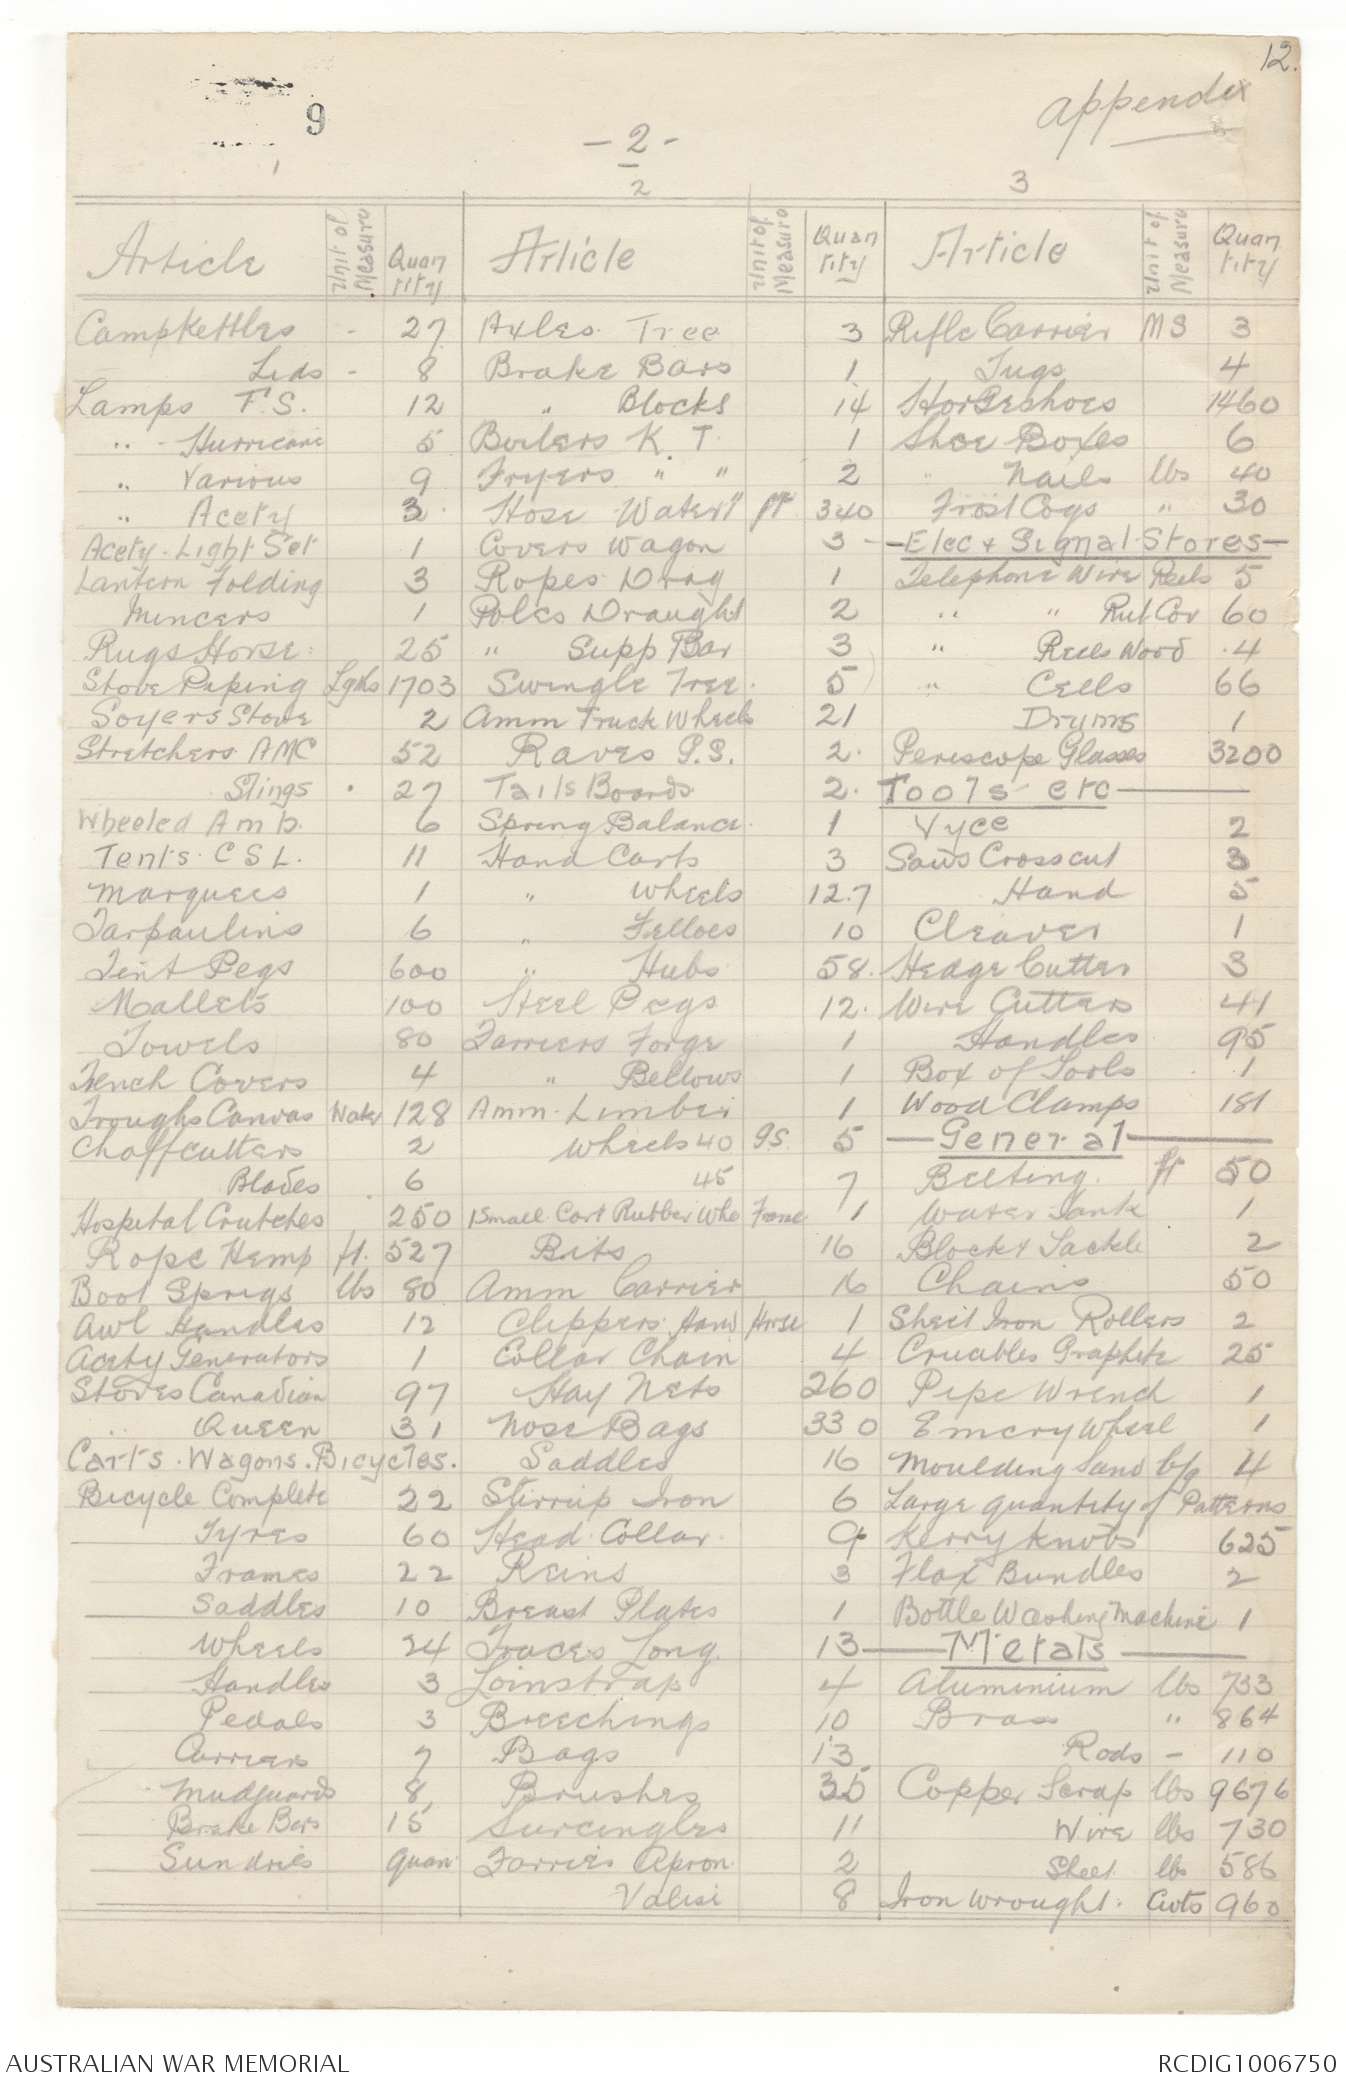 12.
appendix
9
- 2 -
1
2
3
Article Unit of Measure Quantity
Campkettles - 27
Lids - 8
Lamps F.S. 12
" - Hurricane 5
" Various 9
" Acety 3
Acety. Light Set 1
Lantern Folding 3
Mincers 1
Rugs Horse 25
Stove Piping Lgths 1703
Soyers Stove 2
Stretchers AMC 52
Slings 27
Wheeled Amb. 6
Tents. C S L. 11
Marquees 1
Tarpaulins 6
Tent Pegs 600
Mallets 100
Towels 80
Trench Covers 4
Troughs Canvas Water 128
Chaffcutters 2
Blades 6
Hospital Crutches 250
Rope Hemp ft. 527
Boot Sprigs lbs 80
Awl Handles 12
Acety Generators 1
Stoves Canadian 97
" Queen 31
Carts. Wagons. Bicycles.
Bicycle Complete 22
Tyres 60
Frames 22
Saddles 10
Wheels 24
Handles 3
Pedals 3
Carriers 7
Mudguards 8
Brake Bars 15
Sundries quan
Article Unit of Measure Quantity
Axles. Tree 3
Brake Bars 1
" Blocks 14
Boilers K. T. 1
Fryers " " 2
Hose Water ft 340
Covers Wagon 3
Ropes Drag 1
Poles Draught 2
" Supp Bar 3
Swingle Tree 5
Amm Truck Wheels 21
Raves P.S. 2
Tails Boards 2
Spring Balance 1
Hand Carts 3
" Wheels 127
" Felloes 10
" Hubs 58
Steel Pegs 12
Farriers Forge 1
" Bellows 1
Amm. Limber 1
Wheels 40 G.S. 5
45 7
1 Small Cart Rubber Whe 1
Bits 16
Amm Carrier 16
Clippers Hand Horse 1
Collar Chain 4
Hay Nets 260
Nose Bags 330
Saddles 16
Stirrup Iron 6
Head Collar 9
Reins 3
Breast Plates 1
Traces Long 13
Loinstrap 4
Breechings 10
Bags 13
Brushes 35
Surcingles 11
Farriers Apron 2
Valise 8
Article Unit of Measure Quantity
Rifle Carrier M S 3
Tugs 4
Horseshoes 1460
Shoe Boxes 6
" Nails lbs 40
Frost Cogs " 30
- Elec & Signal Stores -
Telephone Wire Reels 5
" " Rub Cov 60
" Reels Wood 4
" Cells 66
Drums 1
Periscope Glasses 3200
Tools etc
Vyce 2
Saws Crosscut 3
Hand 5
Cleaver 1
Hedge Cutter 3
Wire Cutters 41
Handles 95
Box of Tools 1
Wood Clamps 181
General
Belting. ft 50
Water Tank 1
Block & Tackle 2
Chains 50
Sheet Iron Rollers 2
Crucibles Graphite 25
Pipe Wrench 1
Emery Wheel 1
Moulding Sand b/g 4
Large quantity of Patterns
Kerry Knobs 625
Flax Bundles 2
Bottle Washing Machine 1
Metals
Aluminium lbs 733
Brass " 864
Rods - 110
Copper Scrap lbs 9676
Wire lbs 730
Sheet lbs 586
Iron Wrought. Cwts 960
AUSTRALIAN WAR MEMORIAL
RCDIG1006750